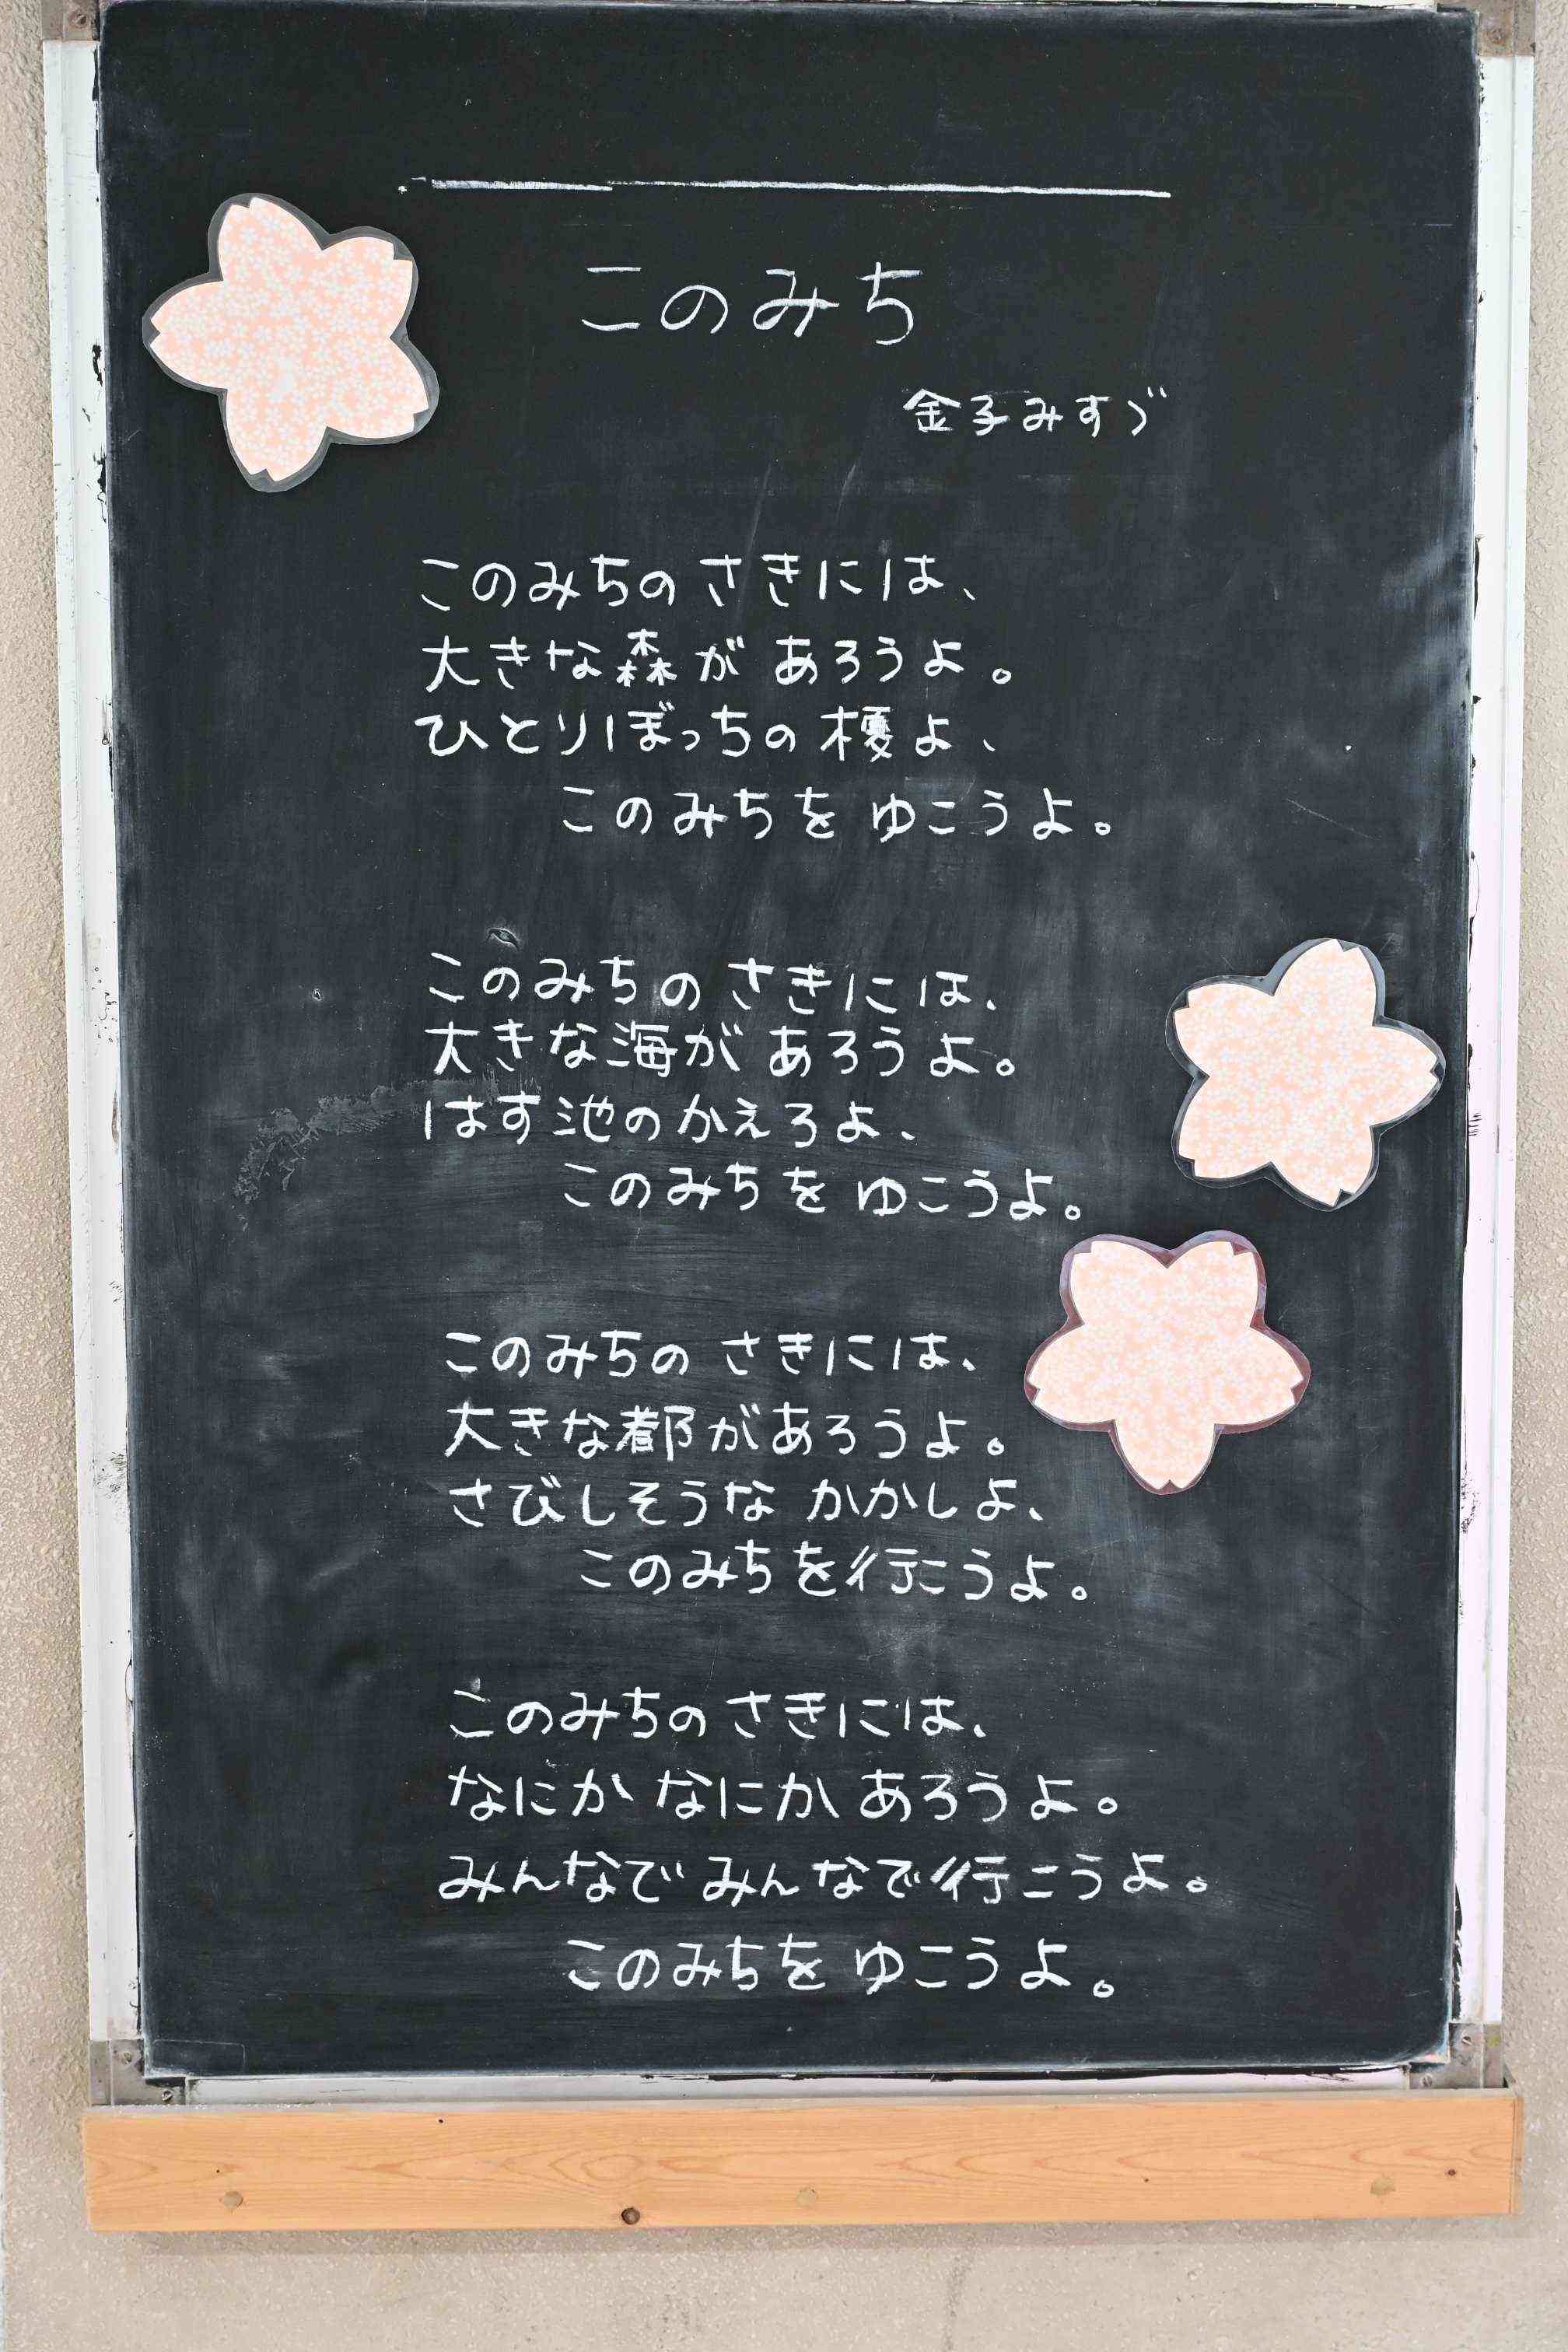 このみち
金子みすゞ
このみちの さきには、
大きな森が あろうよ。
ひとりぼっちの 榎よ、
このみちを ゆこうよ。
このみちの さきには、
大きな海が あろうよ。
はす池のかえろよ、
このみちを ゆこうよ。
このみちの さきには、
大きな都があろうよ。
さびしそうな かかしよ、
このみちを行こうよ。
このみちの さきには、
なにか なにか あろうよ。
みんなで みんなで行こうよ。
このみちを ゆこうよ。